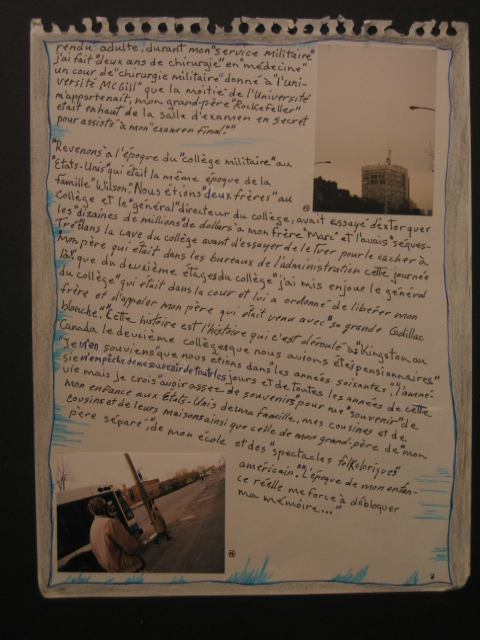 rendu adulte, durant mon "service militaire"
j'ai fait "deux ans de chirurgie" en "médecine"
un cour de "chirurgie militaire" donné à "l'uni-
versité McGill" que la moitié de l'Université
m'appartenait, mon grand-père "Rockefeller"
était en haut de la salle d'examen en secret
pour assisté à mon "examen final.""
"Revenons à l'époque du "collège militaire" au
"États-Unis" qui était la même époque de la
famille "Wilson". Nous étions "deux frères" au
collège et le "général" directeur du collège, avait essayé d'extorquer
les "dizaines de millions" de dollars à mon frère "Marc" et l'avais "séques-
Tré" dans la cave du collège avant d'essayer de le tuer pour le cacher à
"mon père qui était dans les bureaux de l'administration cette journée
là." que du deuxième étages du collège "j'ai mis enjoue le général
du collège" qui était dans la cour et lui a ordonné de libérer mon
frère et d'appeler mon père qui était venu avec "sa grande Cadillac
blanche." "Cette histoire est l'histoire qui c'est déroulé à "Kingston au
Canada le deuxième collèges que nous avions été pensionnaires"
"Je m'en souviens que nous étions dans les années soixantes. "l'amné-
sie m'empêche de me souvenir de toutes les jours et de toutes les années de cette
vie mais je crois "avoir assez de souvenirs" pour me "souvenir" de
mon enfance aux États-Unis de ma famille, mes cousines et de
cousins et de leurs maisons ainsi que celle de mon grand-père de "mon
père séparé", de mon école et des "spectacles folkloriques
américain." "L'époque de mon enfan-
ce réelle me force à débloquer
ma mémoire..."